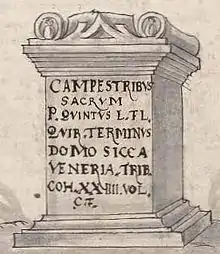 CAMPESTRIBVS
SACRVM
P. QVINTVS L. FL.
QVIR. TERMINVS
DOMO SICCA
VENERIA, TRIB.
COH. XXIIII. VOL.
C.F.